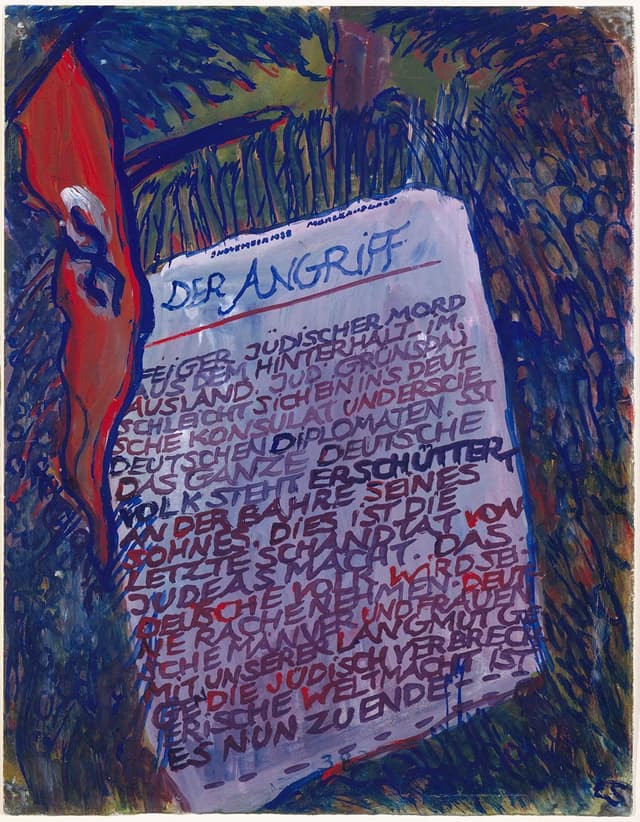 NOVEMBER 1938
DER ANGRIFF
FEIGER JÜDISCHER MORD
AUS DEM HINTERHALT IM
AUSLAND. JUD.
SCHLEICHT SICH EIN INS DEUT
SCHE KONSULAT UND ERSCIE
DEUTSCHEN DIPLOMATEN. SST
DAS GANZE DEUTSCHE
VOLK STEHT ERSCHÜTTERT
AN DER BAHRE SEINES
SOHNES. DIES IST DIE
LETZTE SCHANDTAT VON
JUDEAS MACHT. DAS
DEUTSCHE VOLK WIRD SEI-
NE RACHE NEHMEN. DEUT-
SCHE MÄNNER UND FRAUEN
MIT UNSERER LANGMUT GE
GEN DIE JÜDISCH VERBRECH
ERISCHE WELTMACHT IST
ES NUN ZU ENDE
CS